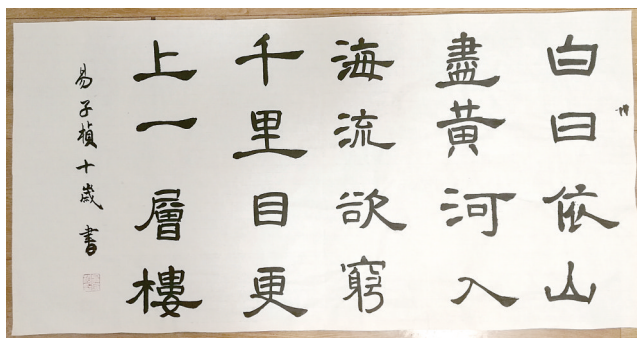 白日依山
盡黃河入
海流欲窮
千里目更
上一層樓
易子楨十歲書